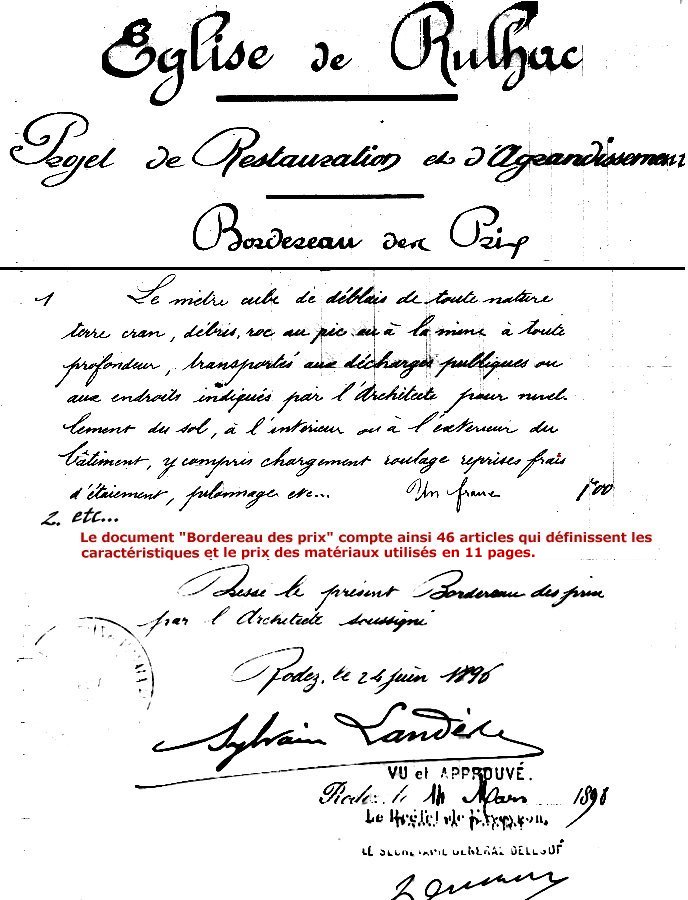 Eglise de Rulhac
Projet de Restauration et d'Agrandissement
Bordereau des Prix
1 Le mètre cube de déblais de toute nature
terre cran, débris, roc au pic ou à la mine à toute
profondeur, transportés aux décharges publiques ou
aux endroits indiqués par l'Architecte pour nivel-
lement du sol, à l'intérieur ou à l'extérieur du
bâtiment, y compris chargement roulage reprises frais
d'étaiement, pilonnage etc... Un franc 1f00
2. etc...
Le document "Bordereau des prix" compte ainsi 46 articles qui définissent les
caractéristiques et le prix des matériaux utilisés en 11 pages.
Dressé le présent Bordereau des prix
par l'Architecte soussigné
Rodez, le 24 juin 1896
Sylvain Landès
VU et APPROUVÉ.
Rodez le 14 Mars 1898
LE SECRETAIRE GENERAL DELEGUÉ